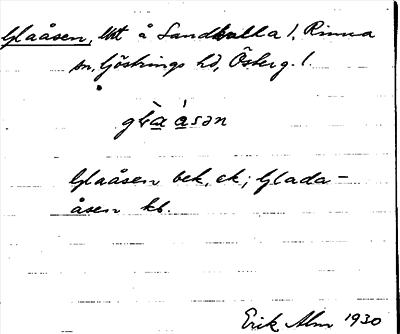 Glaåsen, lht å Sandkulla 1, Rinna
sn, Göstrings hd, Österg. l.
Glaåsen bek, ek; Glada-
åsen kb.
Erik Alm 1930